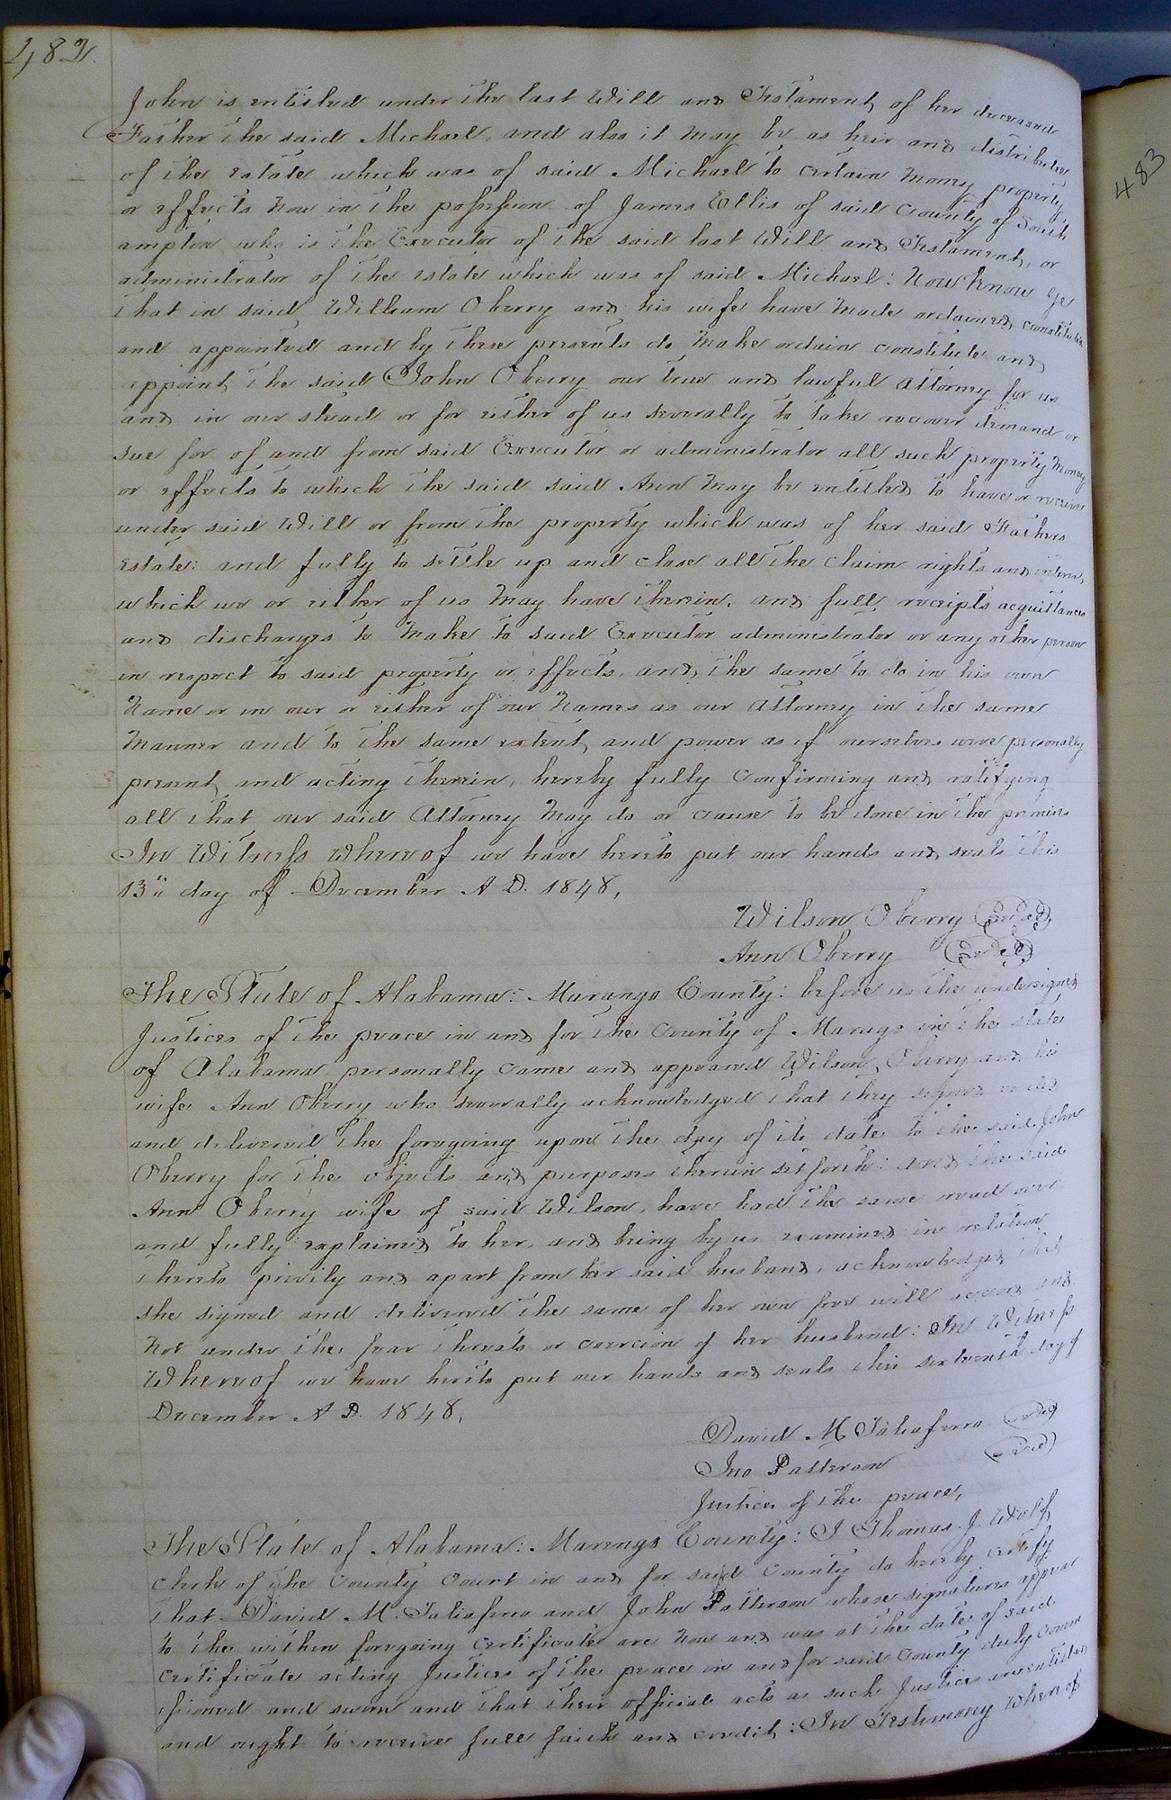 482.
John is entitled under the last Will and Testament of her deceased
Father the said Michael, and also it may be as heir and distributee
of the estate which was of said Michael to certain money property
or effects now in the possession of James Ellis of said County of South
ampton who is the Executor of the said last Will and Testament, or
administrator of the estate which was of said Michael: Now know ye
that in said William Oberry and his wife have made ordained constituted
and appointed and by these presents do make ordain constitute and
appoint the said John Oberry our true and lawful Attorney for us
and in our stead or for either of us severally to take recover demand or
sue for of and from said Executor or administrator all such property money
or effects to which the said said Ann may be entitled to have or receive
under said Will or from the property which was of her said Fathers
estate: and fully to settle up and close all the claim rights and interest
which we or either of us may have therein, and full receipts acquittances
and discharges to make to said Executor administrator or any other person
in respect to said property or effects, and the same to do in his own
name or in our or either of our names as our Attorney in the same
manner and to the same extent and power as if ourselves were personally
present and acting therein, hereby fully confirming and ratifying
all that our said Attorney may do or cause to be done in the premises
In Witness whereof we have hereto put our hands and seals this
13th day of December A D. 1848,
Wilson Oberry (Seal)
Ann Oberry (Seal)
The State of Alabama: Marengo County: before us the undersigned
Justices of the peace in and for the County of Marengo in the state
of Alabama personally came and appeared Wilson Oberry and his
wife Ann Oberry who severally acknowledged that they signed sealed
and delivered the foregoing upon the day of its date to the said John
Oberry for the objects and purposes therein set forth: and the said
Ann Oberry wife of said Wilson, have had the same read over
and fully explained to her, and being by us examined in relation
thereto privily and apart from her said husband, acknowledged that
she signed and delivered the same of her own free will accord and
not under the fear threats or coercion of her husband: In Witness
Whereof we have hereto put our hands and seals this sixteenth day of
December A D. 1848,
David M. Taliaferro (Seal)
Jno Patterson (Seal)
Justices of the peace,
The State of Alabama: Marengo County: I Thomas J. Wolf
Clerk of the County Court in and for said County do hereby certify
that David M. Taliaferro and John Patterson whose signatures appear
to the within foregoing certificate are now and was at the date of said
certificate acting Justices of the peace in and for said County duly comm
issioned and sworn and that their official acts as such Justices are entitled
and ought to receive full faith and credit: In Testimony Whereof
483